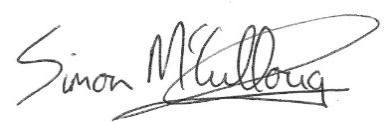 Simon McCullough